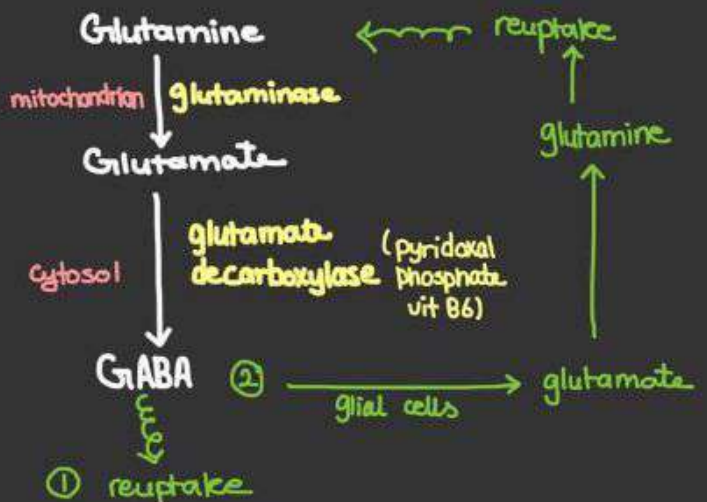 Glutamine
reuptake
mitochondrion
glutaminase
glutamine
Glutamate
glutamate
decarboxylase
(pyridoxal
phosphate
vit B6)
cytosol
GABA
②
glial cells
glutamate
① reuptake